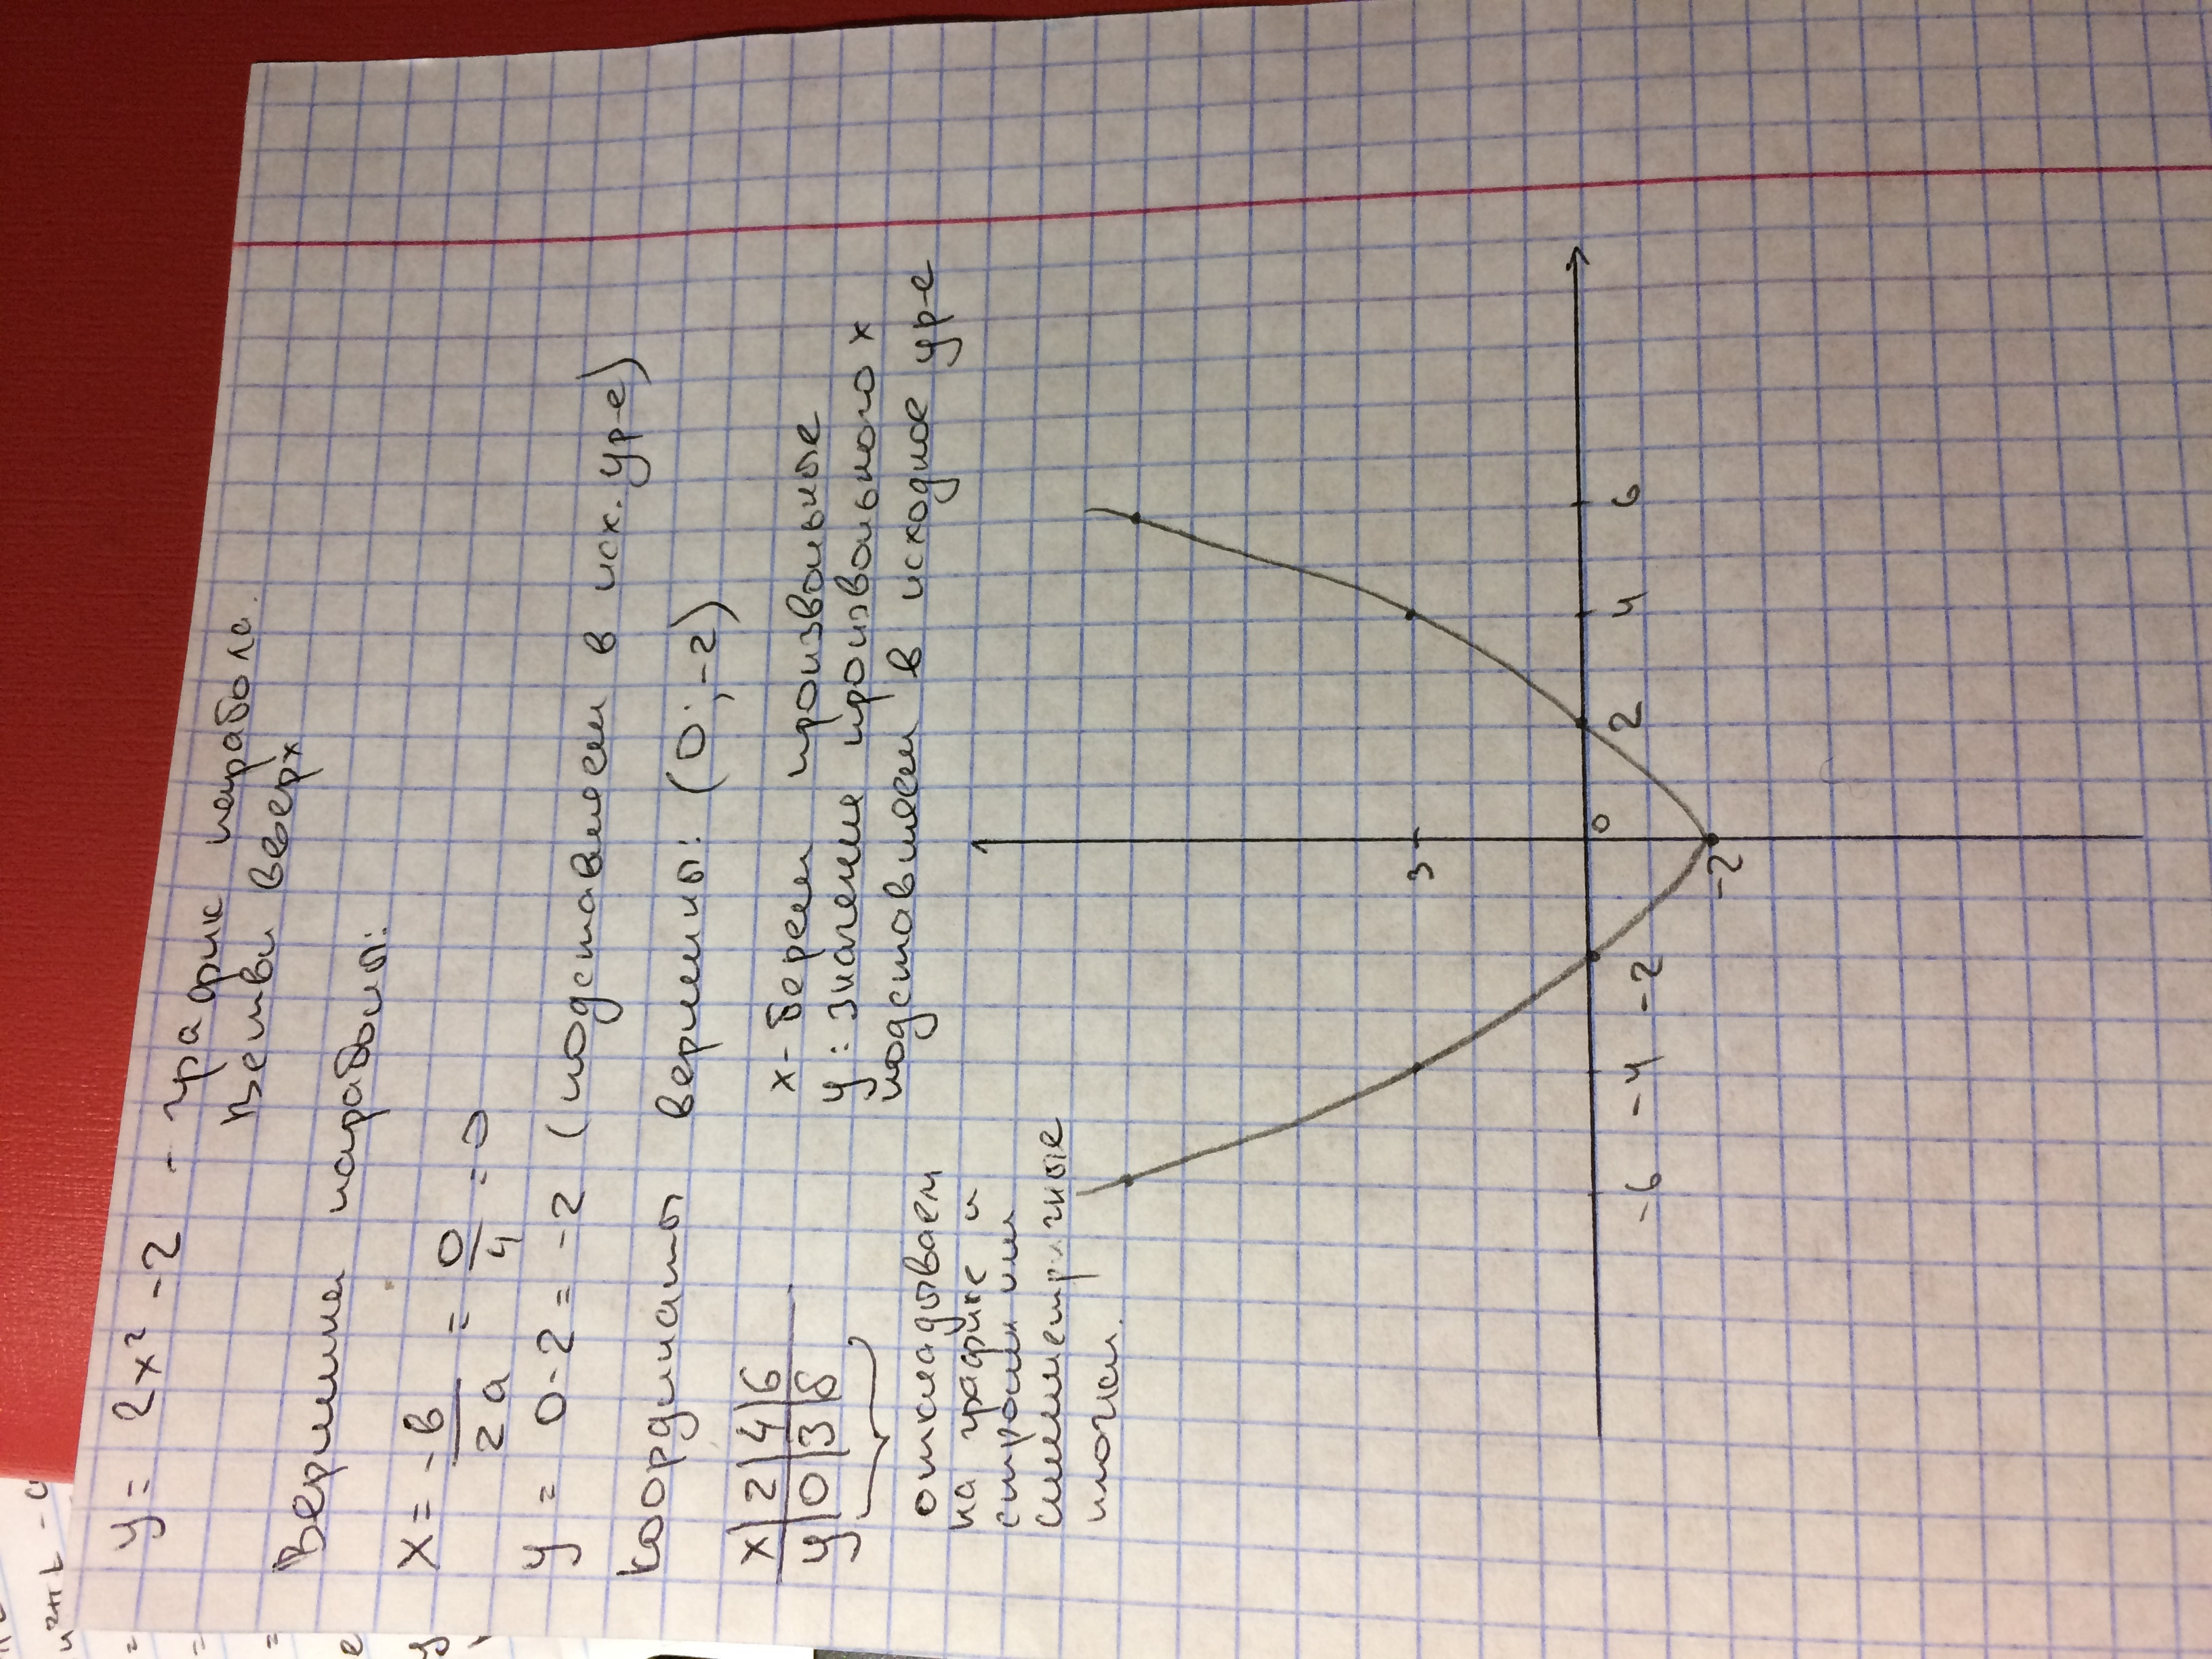 y = 2x² - 2 - график парабола.
Ветви вверх
Вершина параболы:
x = -в/2а = 0/4 = 0
y = 0 - 2 = -2 (подставляем в исх. ур-е)
Координаты вершины: (0; -2)
x | 2 | 4 | 6
y | 0 | 3 | 8
x - берем произвольные
y: значение произвольного x
подставляем в исходное ур-е
откладываем
на графике и
строим им
симметричные
точки.
3
0
-2
-6 -4 -2 2 4 6